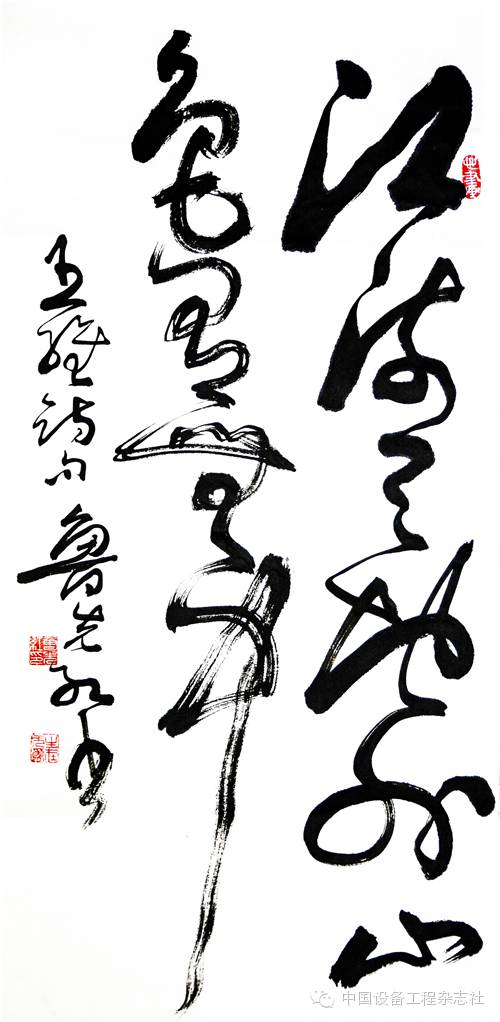 江流天地外山
色有无中
王维诗句 鲁光
中国设备工程杂志社